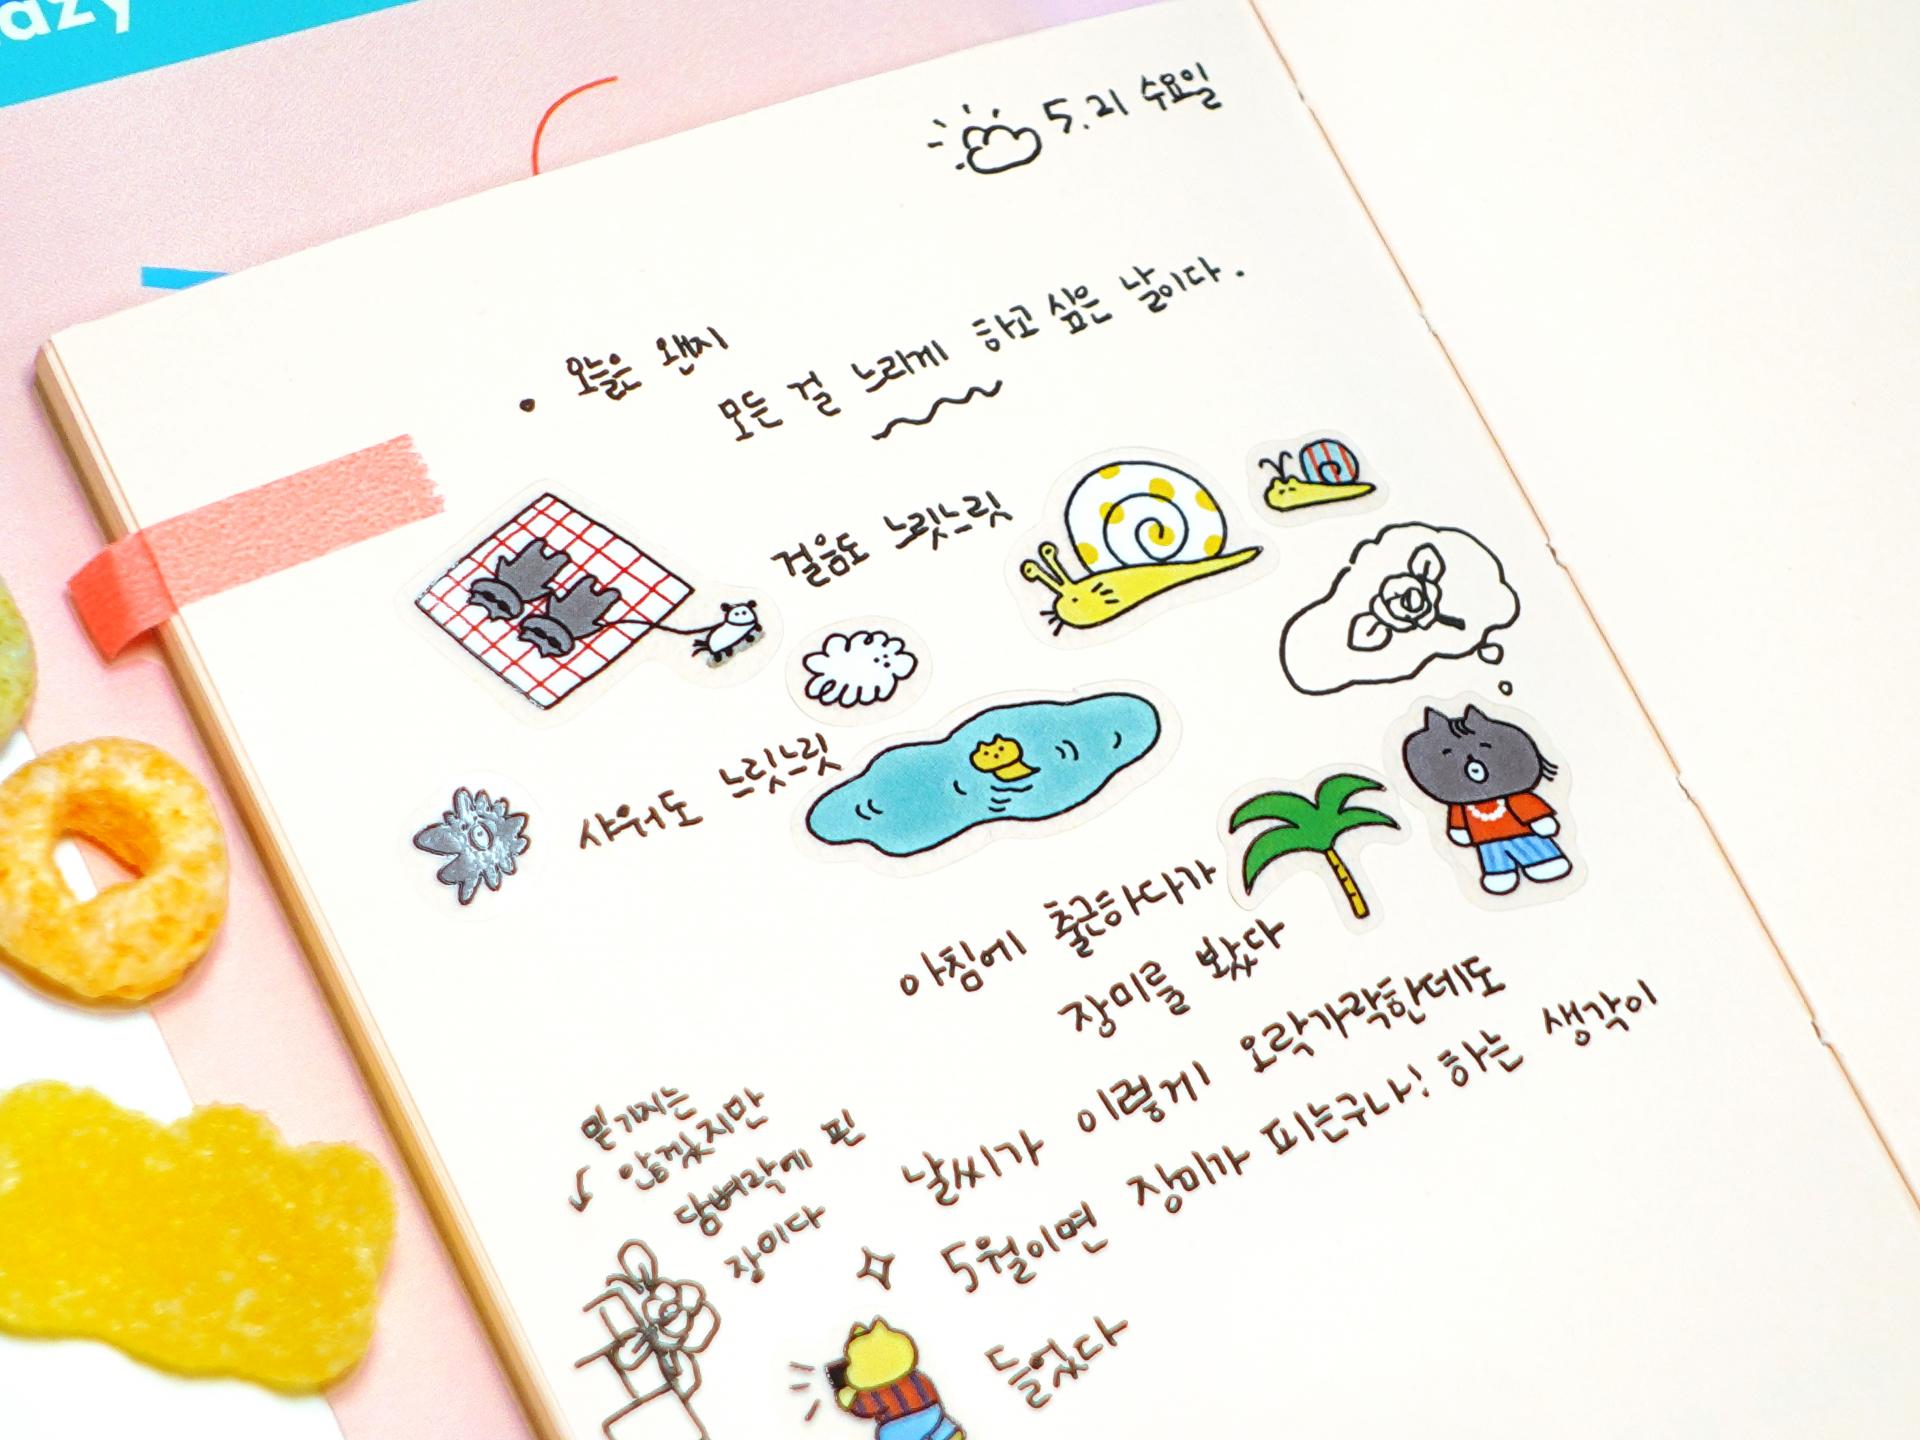 azy
5.21 수요일
오늘은 왠지
모든 걸 느리게 하고 싶은 날이다.
걸음도 느릿느릿
샤워도 느릿느릿
아침에 출근하다가
장미를 봤다
날씨가 이렇게 오락가락한데도
5월이면 장미가 피는구나! 하는 생각이
들었다
믿기지는
않겠지만
담벼락에 핀
장미다